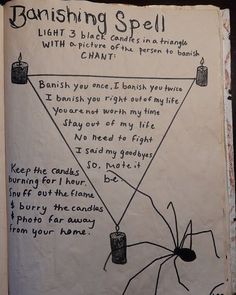 Banishing Spell
LIGHT 3 black candles in a triangle
WITH a picture of the person to banish
CHANT:
Banish you once, I banish you twice
I banish you right out of my life
You are not worth my time
Stay out of my life
No need to fight
I said my goodbyes
So, mote it
be
Keep the candles
burning for 1 hour.
Snuff out the flame
& burry the candles
& photo far away
from your home.